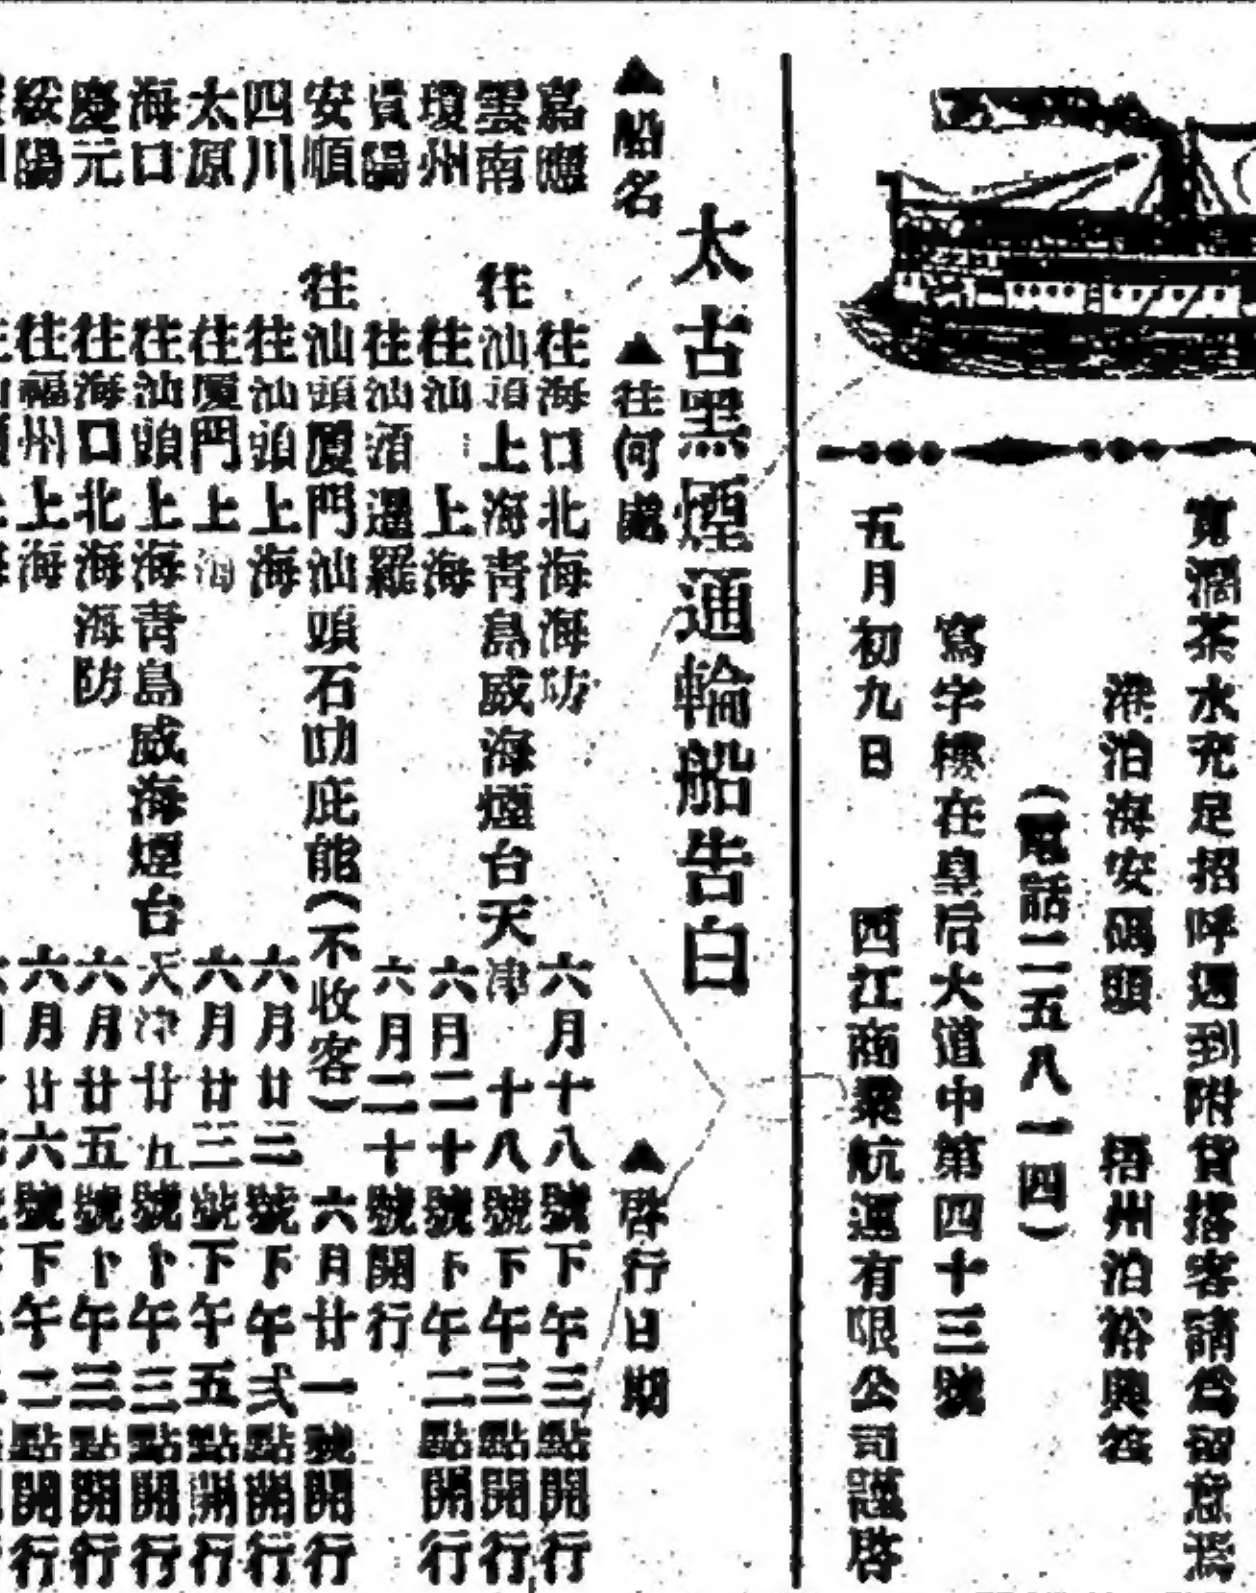 寬濶茶水充足招呼週到附貨搭客請為留意焉
港泊海安碼頭　梧州泊裕興容
(電話二五八一四)
寫字樓在皇后大道中第四十三號
五月初九日　西江商業航運有限公司謹啓
太古黑煙通輪船告白
▲船名　▲往何處　▲啓行日期
嘉應　往海口北海海防　六月十八號下午三點開行
雲南　往汕頭上海青島威海煙台天津　十八號下午三點開行
瓊州　往汕　上海　六月二十號下午二點開行
貴陽　往汕頭暹羅　六月二十號開行
安順　往汕頭廈門汕頭石叻庇能(不收客)　六月廿一號開行
四川　往汕頭上海　六月廿二號下午式點開行
太原　往廈門上海　六月廿三號下午五點開行
海口　往汕頭上海青島威海煙台天津廿五號下午三點開行
慶元　往海口北海海防　六月廿五號下午三點開行
綏陽　往福州上海　六月廿六號下午二點開行